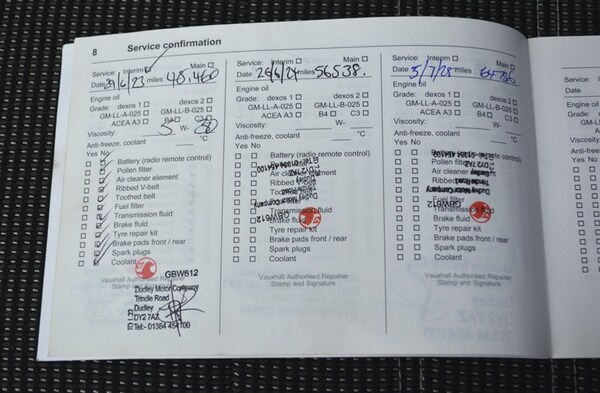 8 Service confirmation
Service: Interim ☐ Main ☐
Date 29/6/23 miles 48,460
Engine oil
Grade: dexos 1 ☐ dexos 2 ☐
GM-LL-A-025 ☐ GM-LL-B-025 ☐
ACEA A3 ☐ B4 ☐ C3 ☐
Viscosity: 5 W- 30
Anti-freeze, coolant °C
Yes No
Battery (radio remote control)
Pollen filter
Air cleaner element
Ribbed V-belt
Toothed belt
Fuel filter
Transmission fluid
Brake fluid
Tyre repair kit
Brake pads front / rear
Spark plugs
Coolant
GBW612
Vauxhall Authorised Repairer
Stamp and Signature
Dudley Motor Company
Trindle Road
Dudley
DY2 7AZ
Tel:- 01384 454100
Service: Interim ☐ Main ☐
Date 26/6/24 miles 56538.
Engine oil
Grade: dexos 1 ☐ dexos 2 ☐
GM-LL-A-025 ☐ GM-LL-B-025 ☐
ACEA A3 ☐ B4 ☐ C3 ☐
Viscosity: W-
Anti-freeze, coolant °C
Yes No
Battery (radio remote control)
Pollen filter
Air cleaner element
Ribbed V-belt
Toothed belt
Fuel filter
Transmission fluid
Brake fluid
Tyre repair kit
Brake pads front / rear
Spark plugs
Coolant
GBW612
Vauxhall Authorised Repairer
Stamp and Signature
Service: Interim ☐ Main ☐
Date miles
Engine oil
Grade: dexos 1 ☐ dexos 2 ☐
GM-LL-A-025 ☐ GM-LL-B-025 ☐
ACEA A3 ☐ B4 ☐ C3 ☐
Viscosity: W-
Anti-freeze, coolant °C
Yes No
Battery (radio remote control)
Pollen filter
Air cleaner element
Ribbed V-belt
Toothed belt
Fuel filter
Transmission fluid
Brake fluid
Tyre repair kit
Brake pads front / rear
Spark plugs
Coolant
GBW612
Vauxhall Authorised Repairer
Stamp and Signature
Service:
Date
Engine oil
Grade:
Viscosity:
Anti-freeze
Yes No